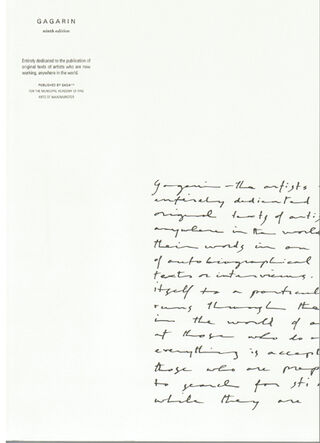 GAGARIN
ninth edition
Entirely dedicated to the publication of
original texts of artists who are now
working, anywhere in the world.
PUBLISHED BY GAGA
FOR THE MUNICIPAL ACADEMY OF FINE
ARTS OF
Gagarin - the artists
entirely dedicated
original texts of arti
anywhere in the world
their words in an
of autobiographical
texts or interviews.
itself to a particul
runs through the
in the world of a
at those who do
everything is accept
those who are prep
to search for sti
while they are